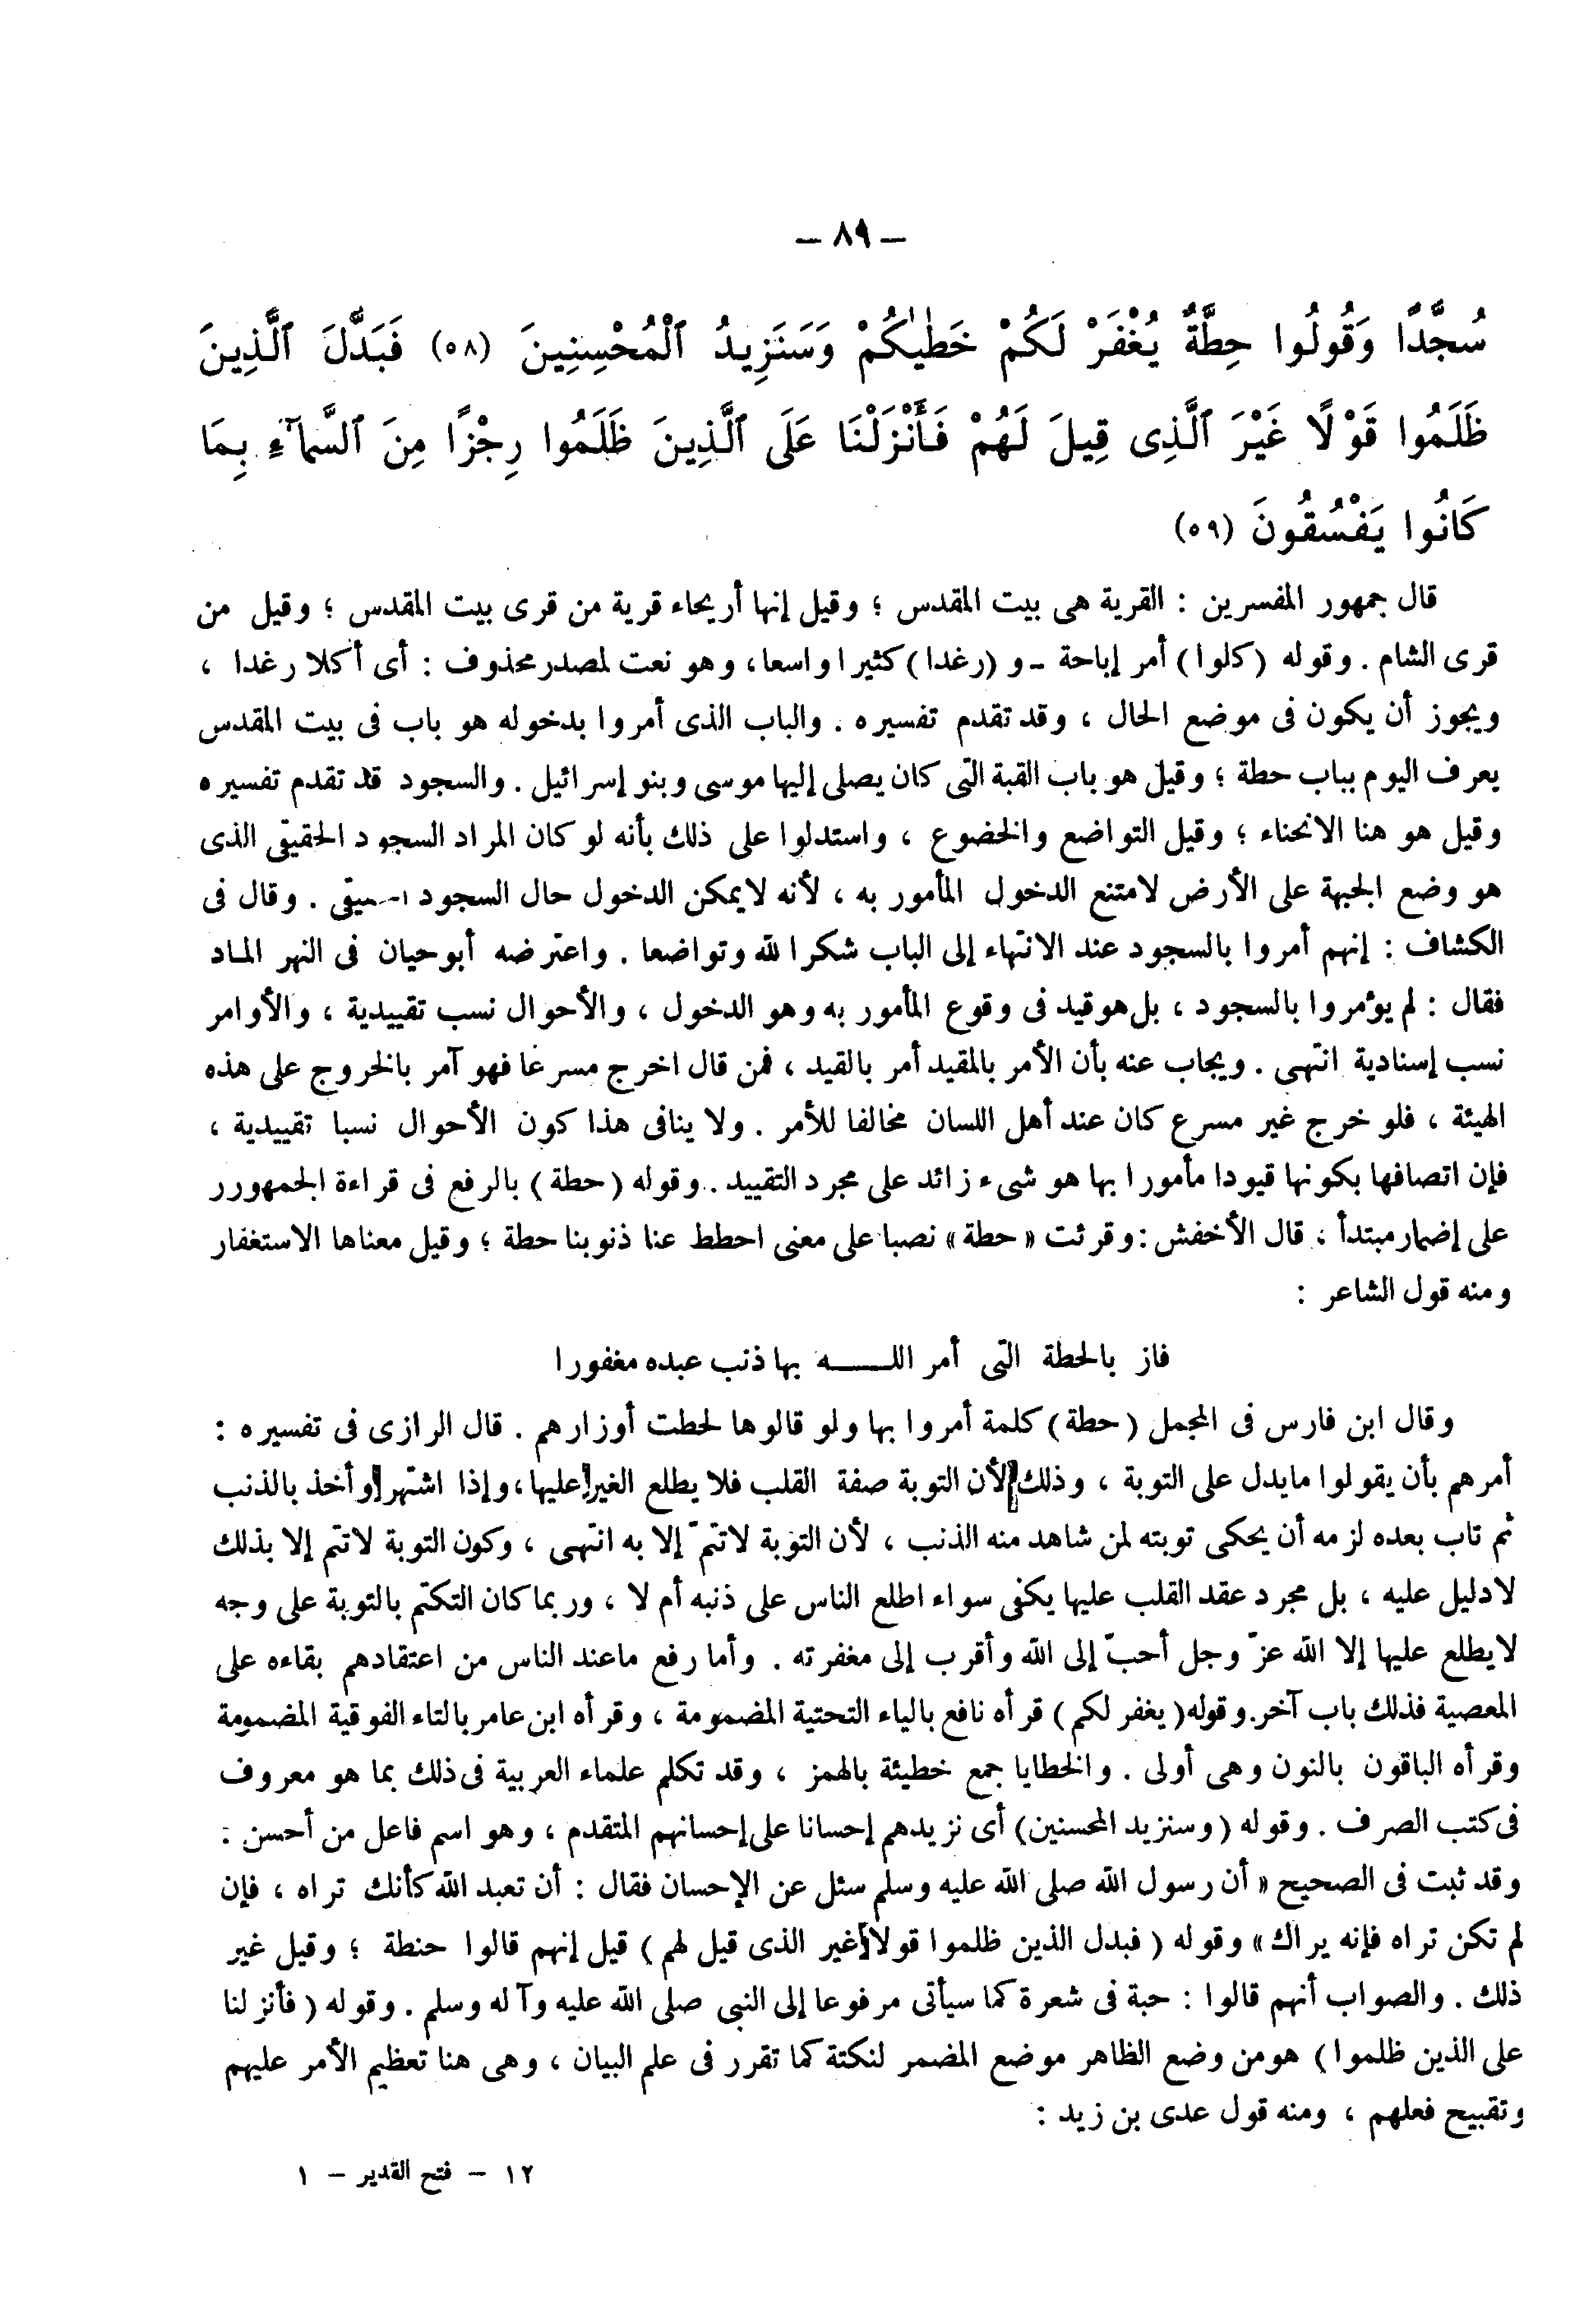 — ٨٩ —
سُجَّدًا وَقُولُوا حِطَّةٌ يُغْفَرْ لَكُمْ خَطٰيٰكُمْ وَسَنَزِيدُ ٱلْمُحْسِنِينَ (٥٨) فَبَدَّلَ ٱلَّذِينَ
ظَلَمُوا قَوْلًا غَيْرَ ٱلَّذِى قِيلَ لَهُمْ فَأَنْزَلْنَا عَلَى ٱلَّذِينَ ظَلَمُوا رِجْزًا مِنَ ٱلسَّمَآءِ بِمَا
كَانُوا يَفْسُقُونَ (٥٩)
قال جمهور المفسرين : القرية هى بيت المقدس ؛ وقيل إنها أريحاء قرية من قرى بيت المقدس ؛ وقيل من
قرى الشام . وقوله (كلوا) أمر إباحة - و (رغدا) كثيرا واسعا، وهو نعت لمصدر محذوف : أى أكلا رغدا ،
ويجوز أن يكون فى موضع الحال ، وقد تقدم تفسيره . والباب الذى أمروا بدخوله هو باب فى بيت المقدس
يعرف اليوم بباب حطة ؛ وقيل هو باب القبة التى كان يصلى إليها موسى وبنو إسرائيل . والسجود قد تقدم تفسيره
وقيل هو هنا الانحناء ؛ وقيل التواضع والخضوع ، واستدلوا على ذلك بأنه لو كان المراد السجود الحقيقى الذى
هو وضع الجبهة على الأرض لامتنع الدخول المأمور به ، لأنه لايمكن الدخول حال السجود . وقال فى
الكشاف : إنهم أمروا بالسجود عند الانتهاء إلى الباب شكرا لله وتواضعا . واعترضه أبوحيان فى النهر الماد
فقال : لم يؤمروا بالسجود ، بل هوقيد فى وقوع المأمور به وهو الدخول ، والأحوال نسب تقييدية ، والأوامر
نسب إسنادية انتهى . ويجاب عنه بأن الأمر بالمقيد أمر بالقيد ، فمن قال اخرج مسرعا فهو آمر بالخروج على هذه
الهيئة ، فلو خرج غير مسرع كان عند أهل اللسان مخالفا للأمر . ولا ينافى هذا كون الأحوال نسبا تقييدية ،
فإن اتصافها بكونها قيودا مأمورا بها هو شىء زائد على مجرد التقييد . وقوله (حطة) بالرفع فى قراءة الجمهورر
على إضمار مبتدأ ، قال الأخفش : وقرئت « حطة » نصبا على معنى احطط عنا ذنوبنا حطة ؛ وقيل معناها الاستغفار
ومنه قول الشاعر :
فاز بالحطة التى أمر اللــــه بها ذنب عبده مغفورا
وقال ابن فارس فى المجمل (حطة) كلمة أمروا بها ولو قالوها لحطت أوزارهم . قال الرازى فى تفسيره :
أمرهم بأن يقولوا مايدل على التوبة ، وذلك لأن التوبة صفة القلب فلا يطلع الغير عليها، وإذا اشتهر وأخذ بالذنب
ثم تاب بعده لزمه أن يحكى توبته لمن شاهد منه الذنب ، لأن التوبة لاتتمّ إلا به انتهى ، وكون التوبة لاتتم إلا بذلك
لادليل عليه ، بل مجرد عقد القلب عليها يكفى سواء اطلع الناس على ذنبه أم لا ، وربما كان التكتم بالتوبة على وجه
لايطلع عليها إلا الله عزّ وجل أحبّ إلى الله وأقرب إلى مغفرته . وأما رفع ماعند الناس من اعتقادهم بقاءه على
المعصية فذلك باب آخر. وقوله (يغفر لكم) قرأه نافع بالياء التحتية المضمومة ، وقرأه ابن عامر بالتاء الفوقية المضمومة
وقرأه الباقون بالنون وهى أولى . والخطايا جمع خطيئة بالهمز ، وقد تكلم علماء العربية فى ذلك بما هو معروف
فى كتب الصرف . وقوله (وسنزيد المحسنين) أى نزيدهم إحسانا على إحسانهم المتقدم ، وهو اسم فاعل من أحسن :
وقد ثبت فى الصحيح « أن رسول الله صلى الله عليه وسلم سئل عن الإحسان فقال : أن تعبد الله كأنك تراه ، فإن
لم تكن تراه فإنه يراك » وقوله ( فبدل الذين ظلموا قولا غير الذى قيل لهم ) قيل إنهم قالوا حنطة ؛ وقيل غير
ذلك . والصواب أنهم قالوا : حبة فى شعرة كما سيأتى مرفوعا إلى النبى صلى الله عليه وآله وسلم . وقوله ( فأنزلنا
على الذين ظلموا ) هومن وضع الظاهر موضع المضمر لنكتة كما تقرر فى علم البيان ، وهى هنا تعظيم الأمر عليهم
وتقبيح فعلهم ، ومنه قول عدى بن زيد :
١٢ - فتح القدير - ١